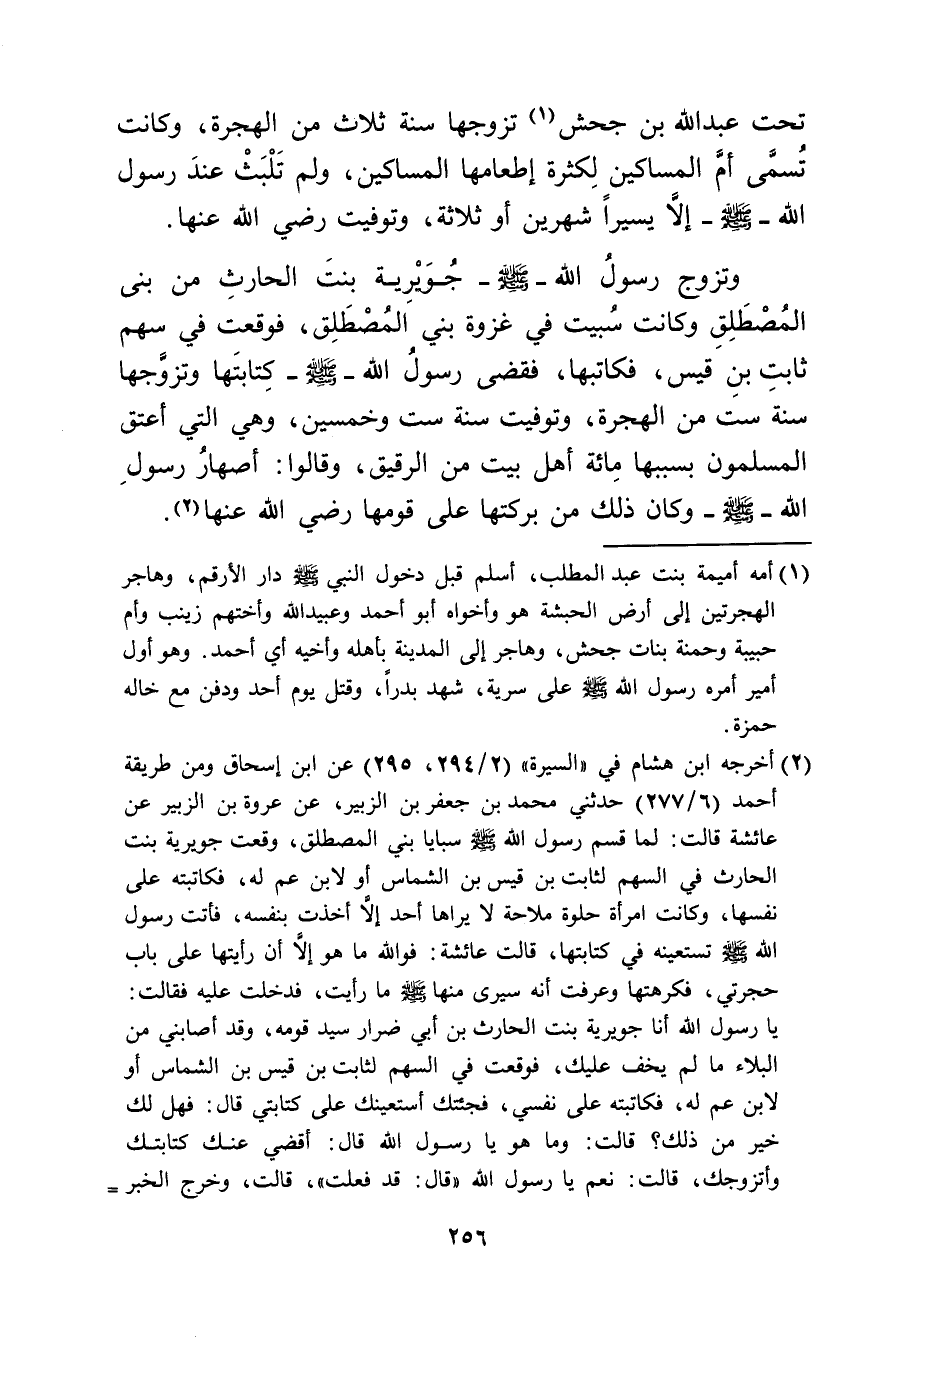 تحت عبدالله بن جحش(١) تزوجها سنة ثلاث من الهجرة، وكانت
تُسمَّى أمَّ المساكين لِكثرة إطعامها المساكين، ولم تَلْبَثْ عندَ رسول
الله ـ ﷺ ـ إلَّا يسيراً شهرين أو ثلاثة، وتوفيت رضي الله عنها.
وتزوج رسولُ الله ـ ﷺ ـ جُوَيْرِية بنتَ الحارثِ من بنى
المُصْطَلِقِ وكانت سُبيت في غزوة بني المُصْطَلِق، فوقعت في سهم
ثابتِ بنِ قيس، فكاتبها، فقضى رسولُ الله ـ ﷺ ـ كِتابتَها وتزوَّجها
سنة ست من الهجرة، وتوفيت سنة ست وخمسين، وهي التي أعتق
المسلمون بسببها مِائة أهل بيت من الرقيق، وقالوا: أصهارُ رسولِ
الله ـ ﷺ ـ وكان ذلك من بركتها على قومها رضي الله عنها(٢).
(١) أمه أميمة بنت عبد المطلب، أسلم قبل دخول النبي ﷺ دار الأرقم، وهاجر
الهجرتين إلى أرض الحبشة هو وأخواه أبو أحمد وعبيدالله وأختهم زينب وأم
حبيبة وحمنة بنات جحش، وهاجر إلى المدينة بأهله وأخيه أي أحمد. وهو أول
أمير أمره رسول الله ﷺ على سرية، شهد بدراً، وقتل يوم أحد ودفن مع خاله
حمزة.
(٢) أخرجه ابن هشام في «السيرة» (٢/٢٩٤، ٢٩٥) عن ابن إسحاق ومن طريقة
أحمد (٦/٢٧٧) حدثني محمد بن جعفر بن الزبير، عن عروة بن الزبير عن
عائشة قالت: لما قسم رسول الله ﷺ سبايا بني المصطلق، وقعت جويرية بنت
الحارث في السهم لثابت بن قيس بن الشماس أو لابن عم له، فكاتبته على
نفسها، وكانت امرأة حلوة ملاحة لا يراها أحد إلَّا أخذت بنفسه، فأتت رسول
الله ﷺ تستعينه في كتابتها، قالت عائشة: فوالله ما هو إلَّا أن رأيتها على باب
حجرتي، فكرهتها وعرفت أنه سيرى منها ﷺ ما رأيت، فدخلت عليه فقالت:
يا رسول الله أنا جويرية بنت الحارث بن أبي ضرار سيد قومه، وقد أصابني من
البلاء ما لم يخف عليك، فوقعت في السهم لثابت بن قيس بن الشماس أو
لابن عم له، فكاتبته على نفسي، فجئتك أستعينك على كتابتي قال: فهل لك
خير من ذلك؟ قالت: وما هو يا رسول الله قال: أقضي عنك كتابتك
وأتزوجك، قالت: نعم يا رسول الله «قال: قد فعلت»، قالت، وخرج الخبر =
٢٥٦